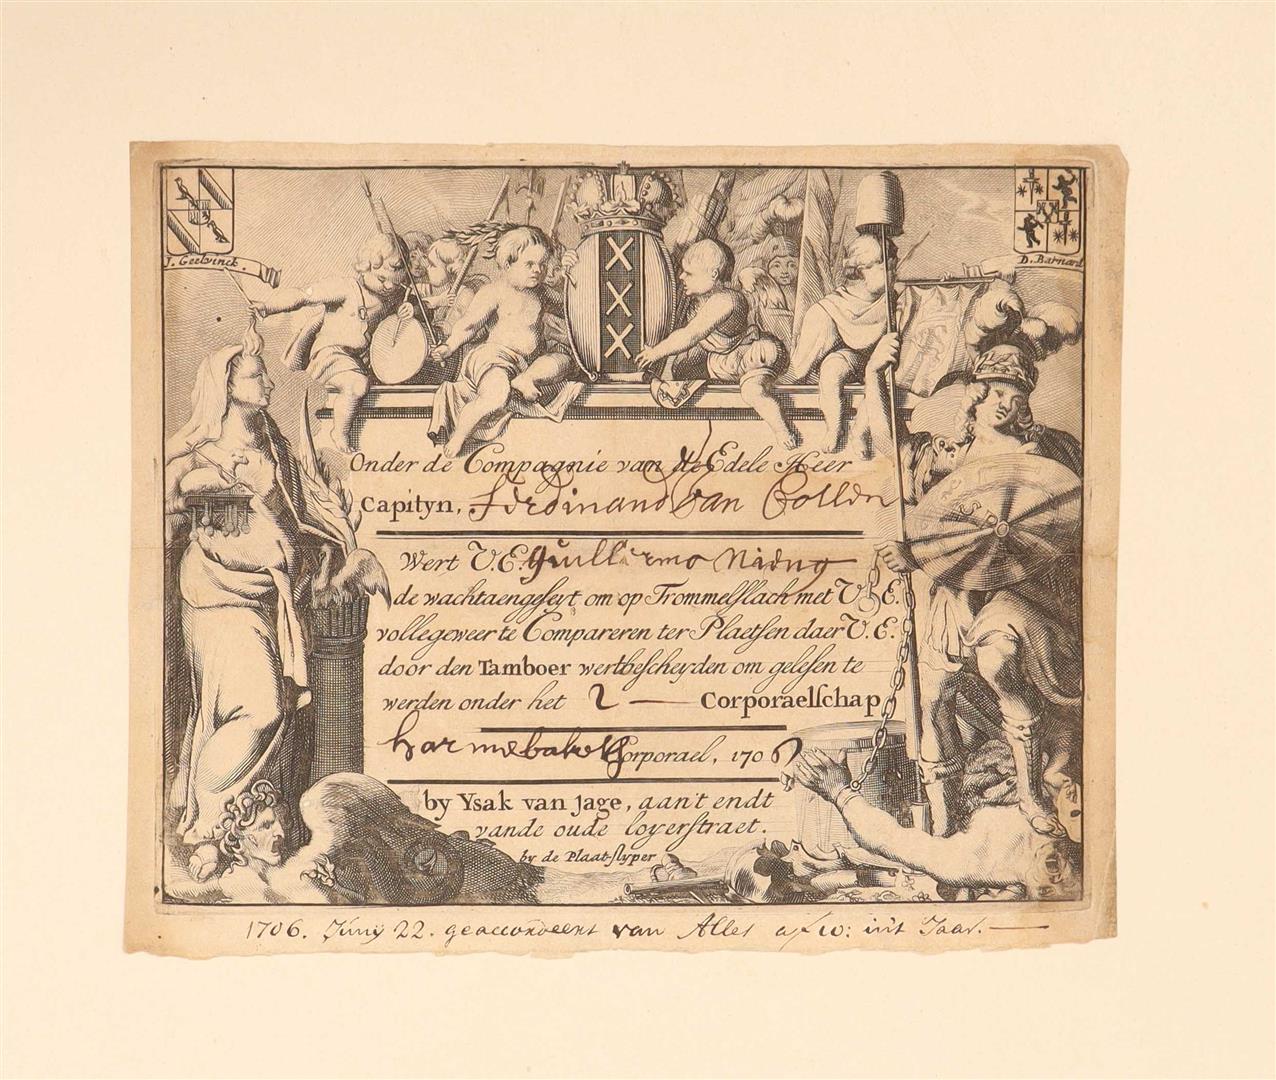 J. Geelvinck.
D. Barnard
Onder de Compagnie van de Edele Heer
Capityn, Ferdinand van Collen
Wert V.E. Guillermo
de wacht aengeseyt om op Trommelslach met V.E.
volle geweer te Compareren ter Plaetsen daer V.E.
door den Tamboer wert bescheyden om gelesen te
werden onder het 2 — Corporaelschap
Corporael, 1706
by Ysak van Jage, aan't endt
vande oude loyerstraet.
by de Plaat-slyper
1706. Juny 22. geaccordeert van Alles a f 10: in't Jaar. —